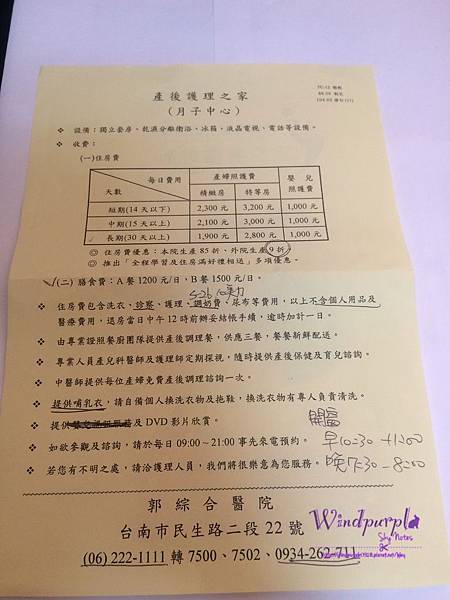 產後護理之家
(月子中心)
❖ 設備：獨立套房、乾濕分離衛浴、冰箱、液晶電視、電話等設備。
❖ 收費：
(一)住房費
每日費用 產婦照護費 嬰兒
天數 精緻房 特等房 照護費
短期(14 天以下) 2,300 元 3,200 元 1,000 元
中期(15 天以上) 2,100 元 3,000 元 1,000 元
長期(30 天以上) 1,900 元 2,800 元 1,000 元
◎ 住房費優惠：本院生產 85 折、外院生產 9 折
◎ 推出「全程學習及住房滿好禮相送」多項優惠。
(二) 膳食費：A 餐 1200 元/日，B 餐 1500 元/日。
❖ 住房費包含洗衣、診察、護理、調奶費、尿布等費用，以上不含個人用品及
醫療費用，退房當日中午 12 時前辦妥結帳手續，逾時加計一日。
❖ 由專業證照餐廚團隊提供產後調理餐，供應三餐，餐餐新鮮配送。
❖ 專業人員產兒科醫師及護理師定期探視，隨時提供產後保健及育兒諮詢。
❖ 中醫師提供每位產婦免費產後調理諮詢一次。
❖ 提供哺乳衣，請自備個人換洗衣物及拖鞋，換洗衣物有專人負責清洗。
❖ 提供 及 DVD 影片欣賞。
開窗
❖ 如欲參觀及諮詢，請於每日 09:00～21:00 事先來電預約。 早10:30 - 11:00
❖ 若您有不明之處，請洽護理人員，我們將很樂意為您服務。 晚7:30 - 8:00
郭綜合醫院
台南市民生路二段 22 號
Windpurple
Sky Notes
(06) 222-1111 轉 7500、7502、0934-262-711